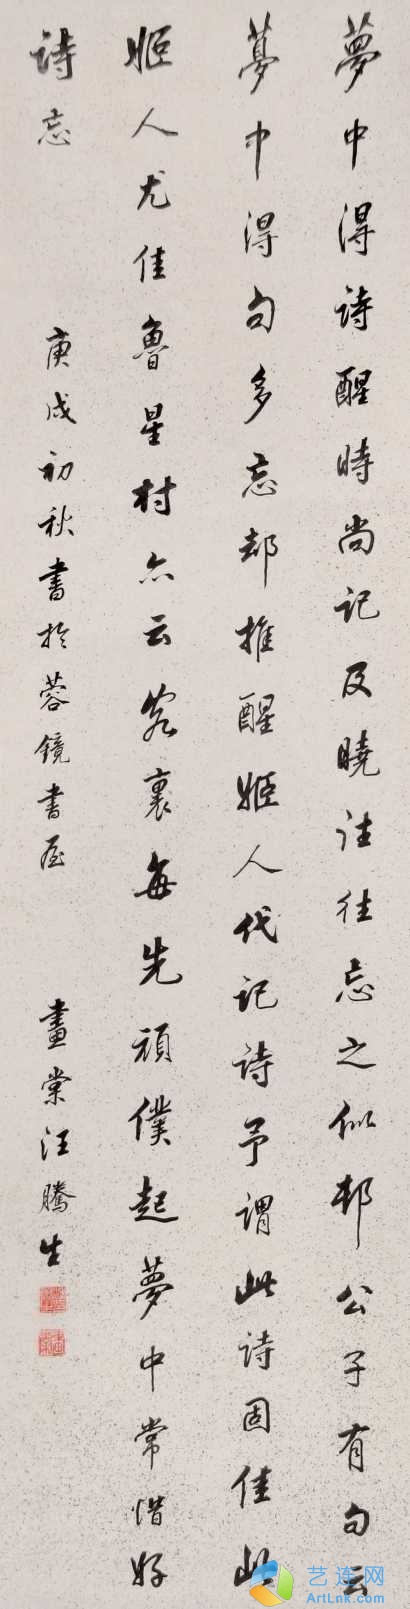 夢中得詩醒時尚記及曉往往忘之似邨公子有句云
夢中得句多忘却推醒姬人代記詩予謂此詩固佳此
姬人尤佳魯星村亦云客裏每先頑僕起夢中常惜好
詩忘 庚戌初秋書於蓉鏡書屋 畫棠汪騰生
艺连网
ArtLnk.com